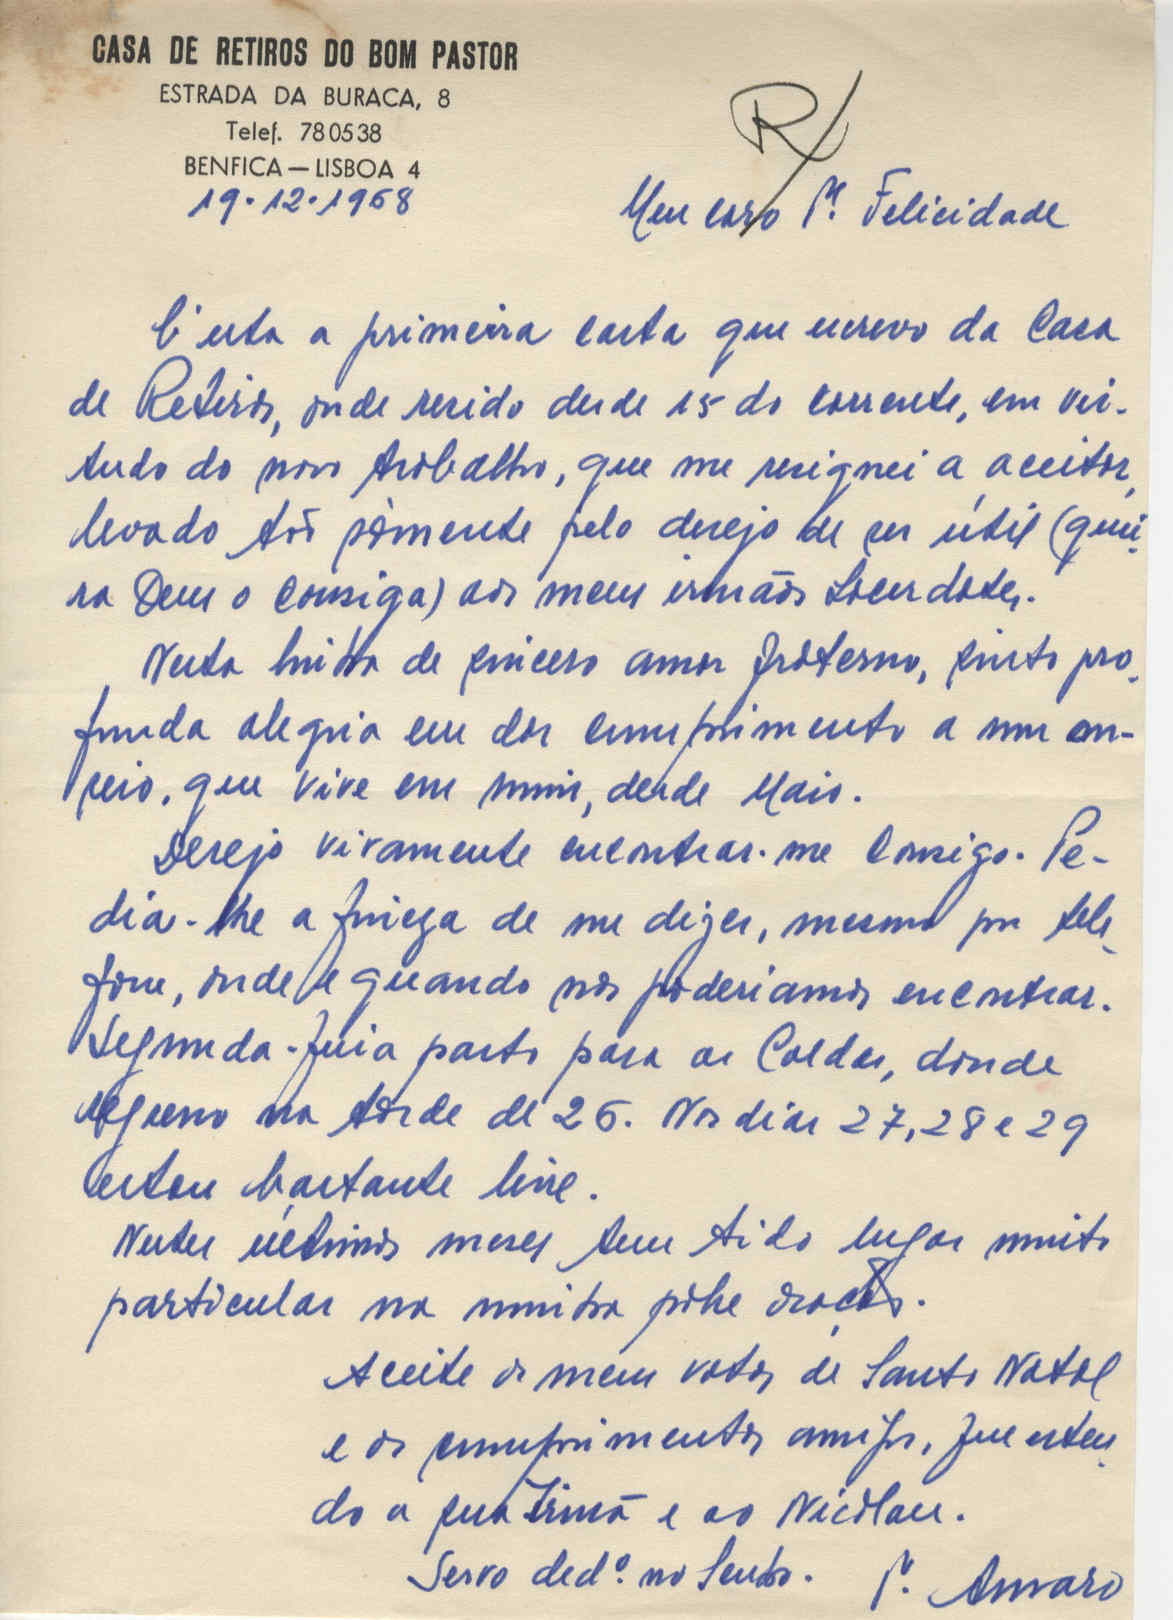 CASA DE RETIROS DO BOM PASTOR
ESTRADA DA BURACA, 8
Telef. 780538
BENFICA — LISBOA 4
19-12-1968
R/
Meu caro P.e Felicidade
É esta a primeira carta que escrevo da Casa
de Retiros, onde resido desde 15 do corrente, em vir-
tude do novo trabalho, que me resignei a aceitar,
levado tão sòmente pelo desejo de ser útil (quei-
ra Deus o consiga) aos meus irmãos Sacerdotes.
Nesta linha de sincero amor fraterno, sinto pro-
funda alegria em dar cumprimento a um an-
seio, que vive em mim, desde Maio.
Desejo vivamente encontrar-me consigo. Pe-
dia-lhe a fineza de me dizer, mesmo por tele-
fone, onde e quando nos poderíamos encontrar.
Segunda-feira parto para as Caldas, donde
regresso na tarde de 26. Nos dias 27, 28 e 29
estou bastante livre.
Nestes últimos meses tem tido lugar muito
particular na minha pobre oração.
Aceite os meus votos de Santo Natal
e os cumprimentos amigos, que esten-
do a sua Irmã e ao Nicolau.
Servo ded.º no Senhor.
P. Amaro